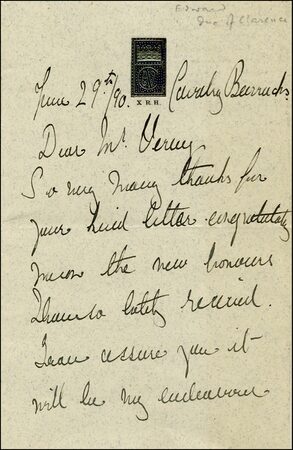 Edward
Duke of Clarence
X.R.H.
June 29th/90. Cavalry Barracks.
Dear Mr. Verney
So very many thanks for
your kind letter congratulating
me on the new honours
I have so lately received.
I can assure you it
will be my endeavour